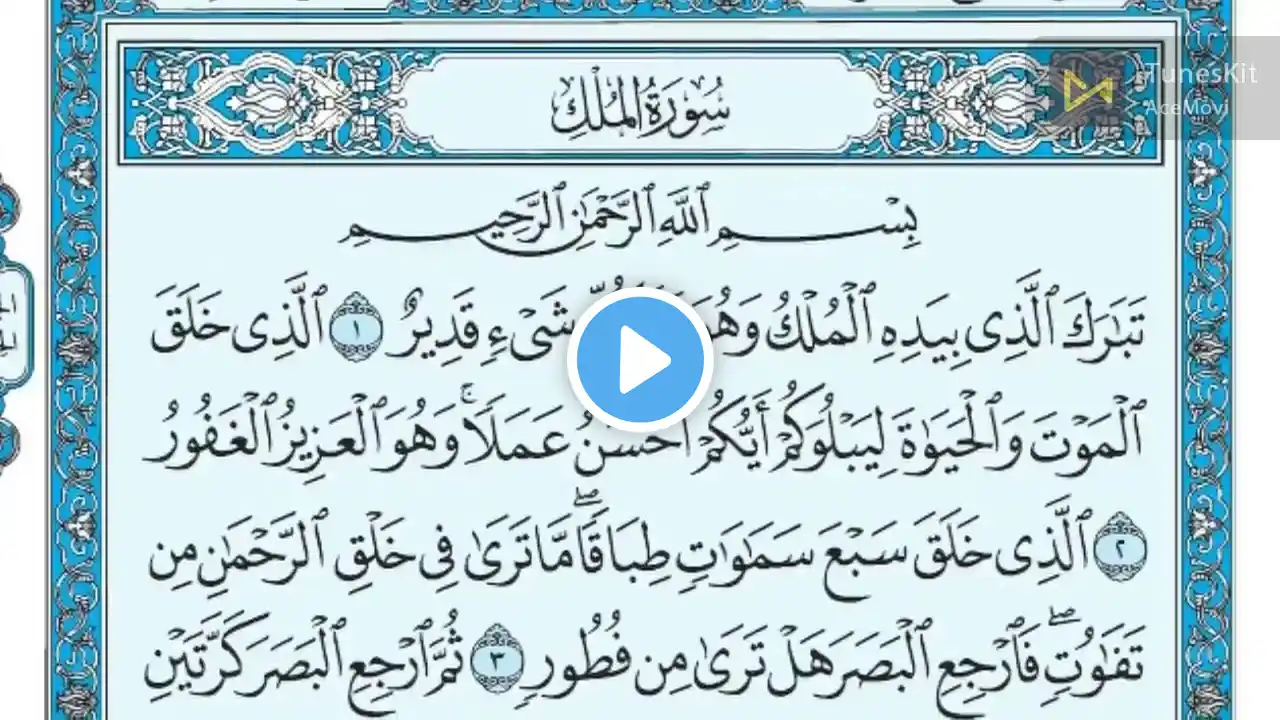 سُورَةُ الْمُلْكِ
iTunesKit
AceMovi
بِسْمِ ٱللَّهِ ٱلرَّحْمَٰنِ ٱلرَّحِيمِ
تَبَٰرَكَ ٱلَّذِى بِيَدِهِ ٱلْمُلْكُ وَهُوَ شَىْءٍ قَدِيرٌ ١ ٱلَّذِى خَلَقَ
ٱلْمَوْتَ وَٱلْحَيَوٰةَ لِيَبْلُوَكُمْ أَيُّكُمْ أَحْسَنُ عَمَلًاۚ وَهُوَ ٱلْعَزِيزُ ٱلْغَفُورُ
٢ ٱلَّذِى خَلَقَ سَبْعَ سَمَٰوَٰتٍ طِبَاقًاۖ مَّا تَرَىٰ فِى خَلْقِ ٱلرَّحْمَٰنِ مِن
تَفَٰوُتٍۖ فَٱرْجِعِ ٱلْبَصَرَ هَلْ تَرَىٰ مِن فُطُورٍ ٣ ثُمَّ ٱرْجِعِ ٱلْبَصَرَ كَرَّتَيْنِ